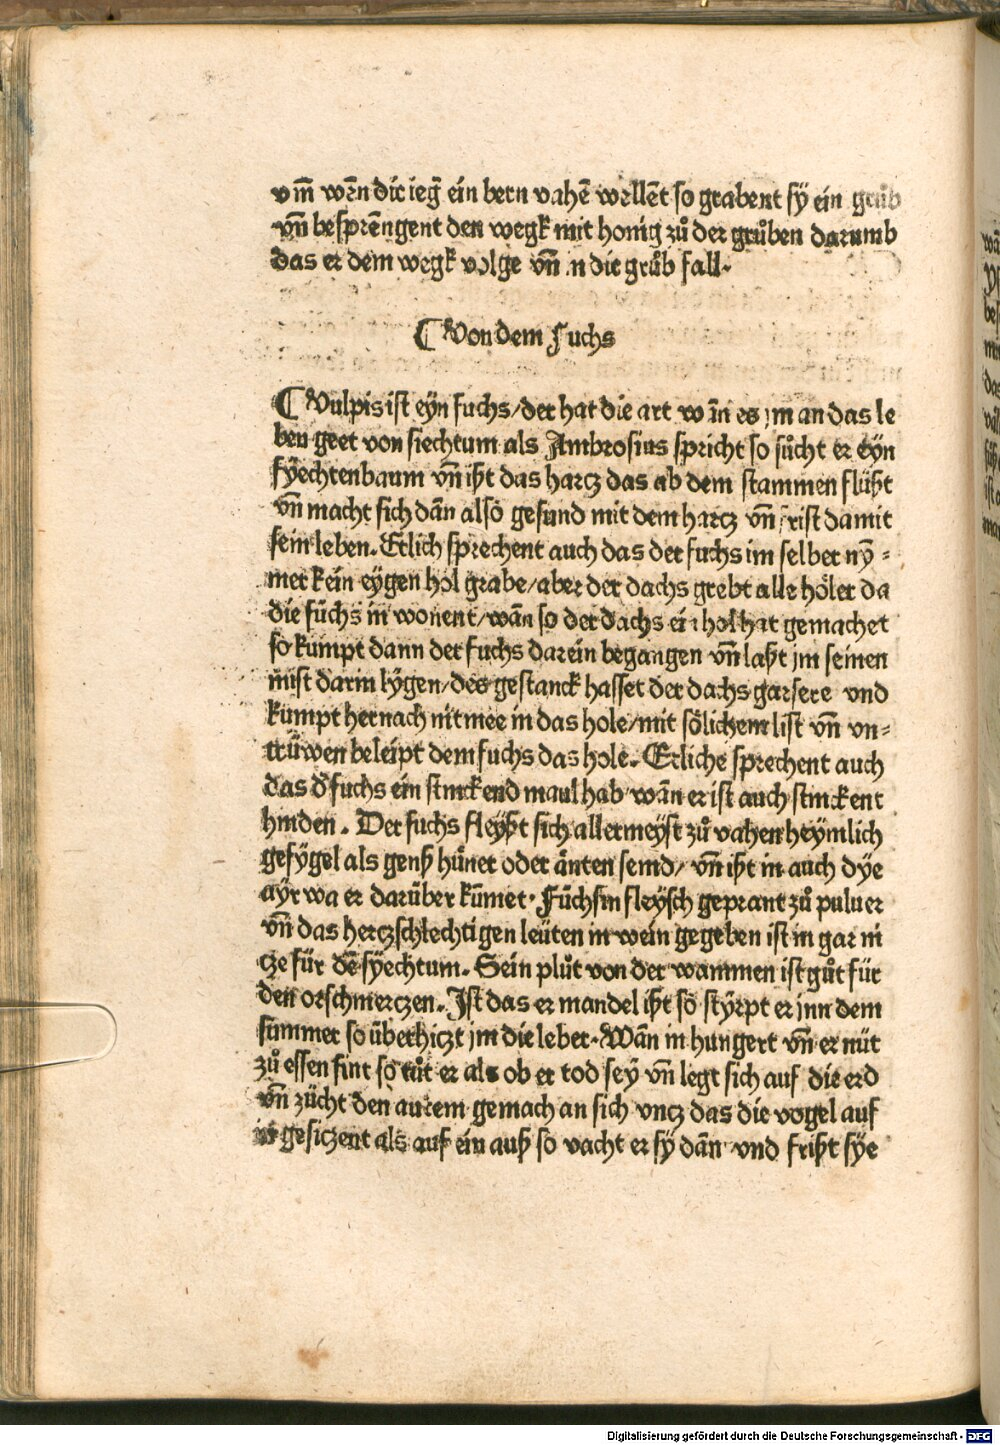 vm̄ wen̄ die ieg̃ ein bern vahē wellēt so grabent sÿ ein grůb
vn̄ besprēngent den wegk mit honig zů der grůben darumb
das er dem wegk volge vn̄ in die grůb fall.
⸿ Von dem Fuchs
⸿ Vulpis ist eÿn fuchs/der hat die art wān es jm an das le
ben geet von siechtum als Ambrosius spricht so sůcht er eÿn
fÿechtenbaum vn̄ ißt das harcz das ab dem stammen flüßt
vn̄ macht sich dān also gesund mit dem harcz vn̄ frist damit
sein leben. Etlich sprechent auch das der fuchs im selber nÿ⸗
mer kein eÿgen hol grabe/aber der dachs grebt alle höler da
die füchs in wonent/wān so der dachs ein hol hat gemachet
so kumpt dann der fuchs darein begangen vn̄ laßt jm seinen
mist darin lÿgen/des gestanck hasset der dachs gar sere vnd
kumpt hernach nit mee in das hole/mit sölichem list vn̄ vn⸗
trüwen beleipt dem fuchs das hole. Etliche sprechent auch
das d̕ fuchs ein stinckend maul hab/wān er ist auch stinckent
hinden. Der fuchs fleÿßt sich allermeÿst zů vahen heÿmlich
gefÿgel als genß hůner oder änten seind/ vn̄ ißt in auch dÿe
aÿr wa er darüber kūmet. Füchsin fleÿsch geprant zů puluer
vn̄ das herczschlechtigen leüten in wein gegeben ist in gar ni
cze für dē sÿechtum. Sein plůt von der wammen ist gůt für
den orschmerczen. Ist das er mandel ißt so stÿrpt er jnn dem
summer so überhiczt jm die leber. Wān in hungert vn̄ er nüt
zů essen fint so tůt er als ob er tod seÿ vn̄ legt sich auf die erd
vn̄ zücht den autem gemach an sich vncz das die vogel auf
in gesiczent als auf ein auß so vacht er sÿ dān vnd frißt sÿe
Digitalisierung gefördert durch die Deutsche Forschungsgemeinschaft - DFG